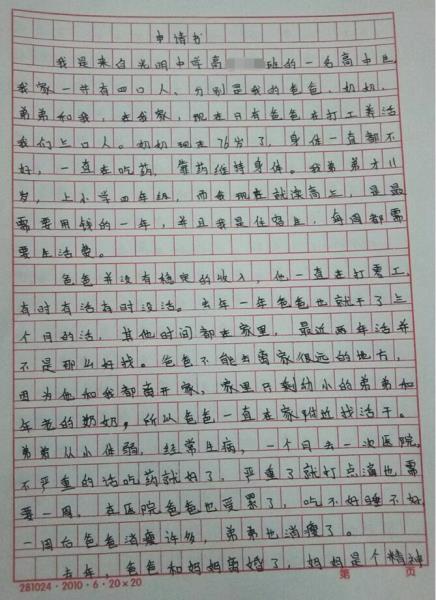 申请书
我是来自光明中学高 班的一名高中生
我家一共有四口人，分别是我的爸爸，奶奶，
弟弟和我，在我家，现在只有爸爸在打工养活
我们三口人。奶奶现在76岁了，身体一直都不
好，一直在吃药，靠药维持身体。我弟弟才11
岁，上小学四年级，而我现在就读高三，是最
需要用钱的一年，并且我是住宿生，每周都需
要生活费。
爸爸并没有稳定的收入，他一直在打零工，
有时有活有时没活。去年一年爸爸也就干了三
个月的活，其他时间都在家里，最近两年活并
不是那么好找。爸爸不能去离家很远的地方，
因为他如我都离开家，家里只剩幼小的弟弟和
年老的奶奶，所以爸爸一直在家附近找活干。
弟弟从小体弱，经常生病，一个月去一次医院，
不严重的话吃药就好了，严重了就打点滴也需
要一周，在医院爸爸也受累了，吃不好睡不好，
一周后爸爸消瘦许多，弟弟也消瘦了。
去年，爸爸和妈妈离婚了，妈妈是个精神
281024·2010·6·20×20
第 页